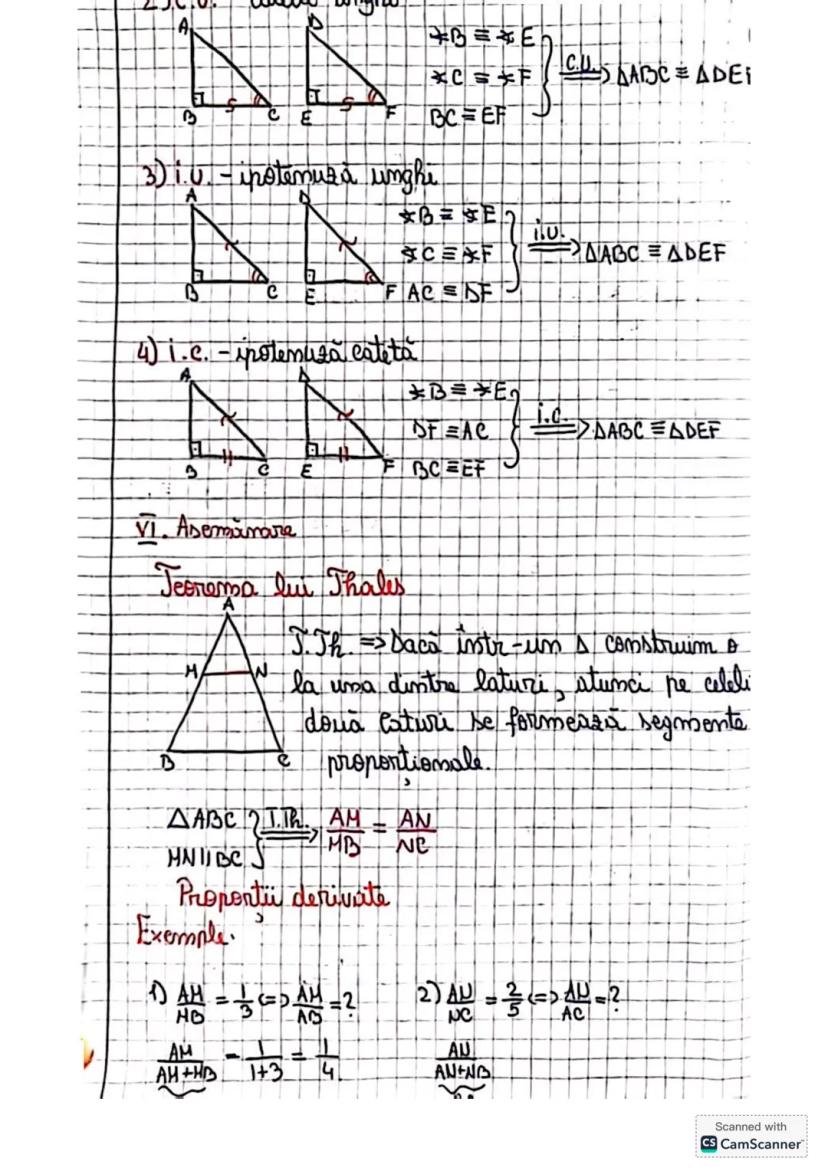 2) C.U. catetă unghi
A D
∢B ≡ ∢E
∢C ≡ ∢F
BC ≡ EF
C.U. ⟹ ΔABC ≡ ΔDEF
B S C E S F
3) i.u. - ipotenuză unghi
A D
∢B ≡ ∢E
∢C ≡ ∢F
AC ≡ DF
i.u. ⟹ ΔABC ≡ ΔDEF
B C E F
4) i.c. - ipotenuză catetă
A D
∢B ≡ ∢E
DF ≡ AC
BC ≡ EF
i.c. ⟹ ΔABC ≡ ΔDEF
B C E F
VI. Asemănare
Teorema lui Thales
A
M N
B C
T.Th. => Dacă într-un Δ construim o
la una dintre laturi, atunci pe celel
două laturi se formează segmente
proporționale.
ΔABC
MN||BC
T.Th. ⟹ AM/MB = AN/NC
Proporții derivate
Exemple.
1) AM/MB = 1/3 <=> AM/AB = ? 2) AN/NC = 2/5 <=> AN/AC = ?
AM/AM+MB = 1/1+3 = 1/4 AN/AN+NB
Scanned with
CS CamScanner